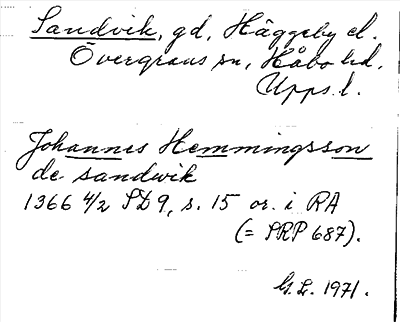 Sandvik, gd, Häggeby el.
Övergrans sn, Håbo hd.
Upps. l.
Johannes Hemmingsson
de sandwik
1366 4/2 SD 9, s. 15 or. i RA
(= SRP 687).
G.L. 1971.